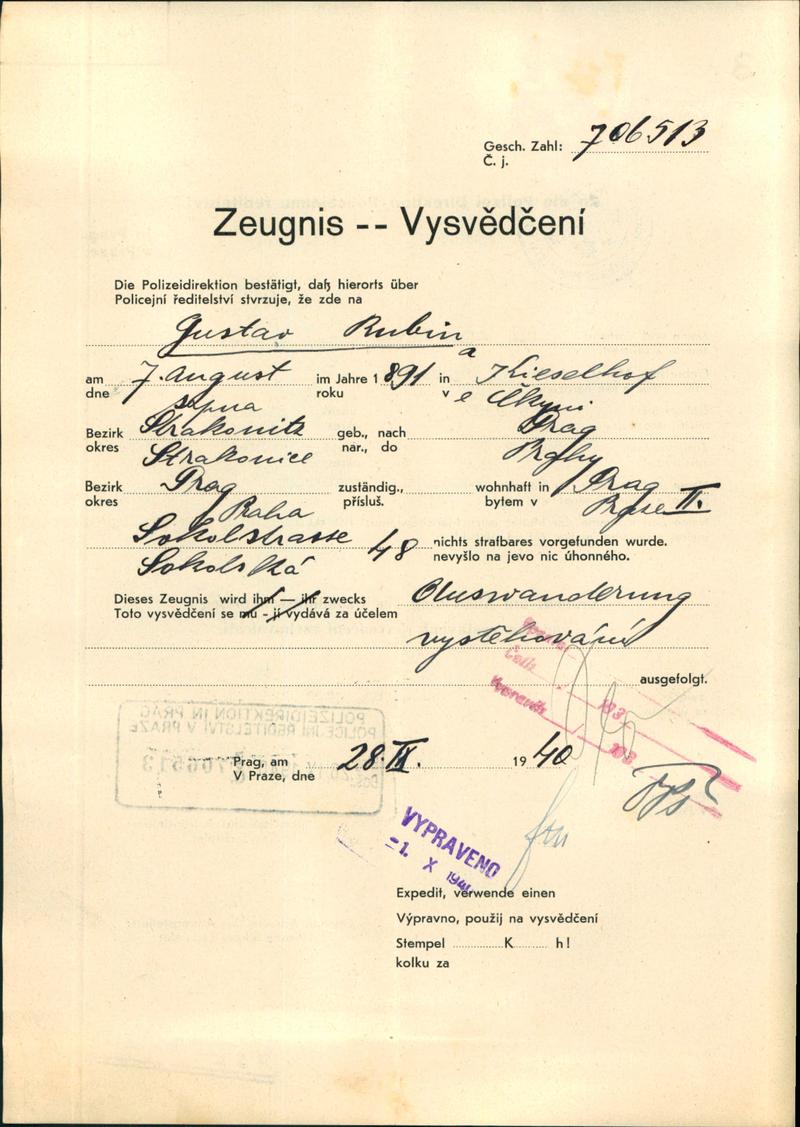 Gesch. Zahl: 706513
Č. j.
Zeugnis -- Vysvědčení
Die Polizeidirektion bestätigt, daß hierorts über
Policejní ředitelství stvrzuje, že zde na
Gustav Rubin
a
am 7. August im Jahre 1 891 in Kieselhof
dne srpna roku v e Čkyni
Bezirk Strakonitz geb., nach Prag
okres Strakonice nar., do Prahy
Bezirk Prag zuständig., wohnhaft in Prag II.
okres Praha přísluš. bytem v Praze
Sokolstrasse 48 nichts strafbares vorgefunden wurde.
Sokolská nevyšlo na jevo nic úhonného.
Dieses Zeugnis wird ihm — ihr zwecks Auswanderung
Toto vysvědčení se mu - jí vydává za účelem
vystěhování
ausgefolgt.
POLIZEIDIREKTION IN PRAG
POLICEJNÍ ŘEDITELSTVÍ V PRAZE
706513
Prag, am 28. IX. 19 40
V Praze, dne
VYPRAVENO
-1. X 194
Expedit, verwende einen
Výpravno, použij na vysvědčení
Stempel K h!
kolku za